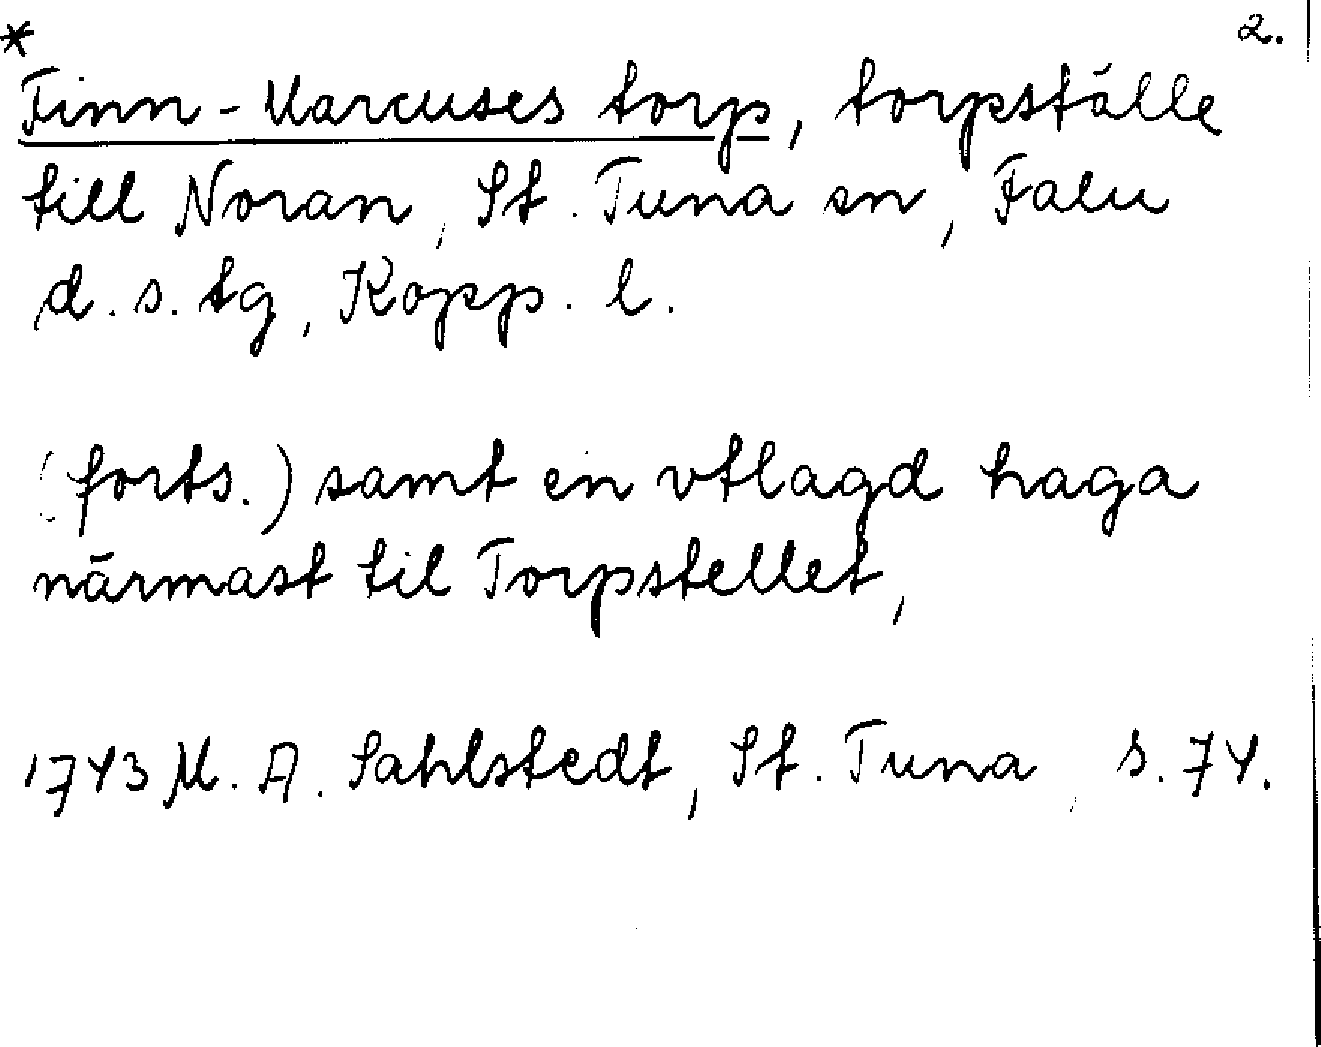 * 2.
Finn-Marcuses torp, torpställe
till Noran, St. Tuna sn, Falu
d. s. tg, Kopp. l.
(forts.) samt en vtlagd haga
närmast til Torpstellet,
1743 M. A. Sahlstedt, St. Tuna, s. 74.